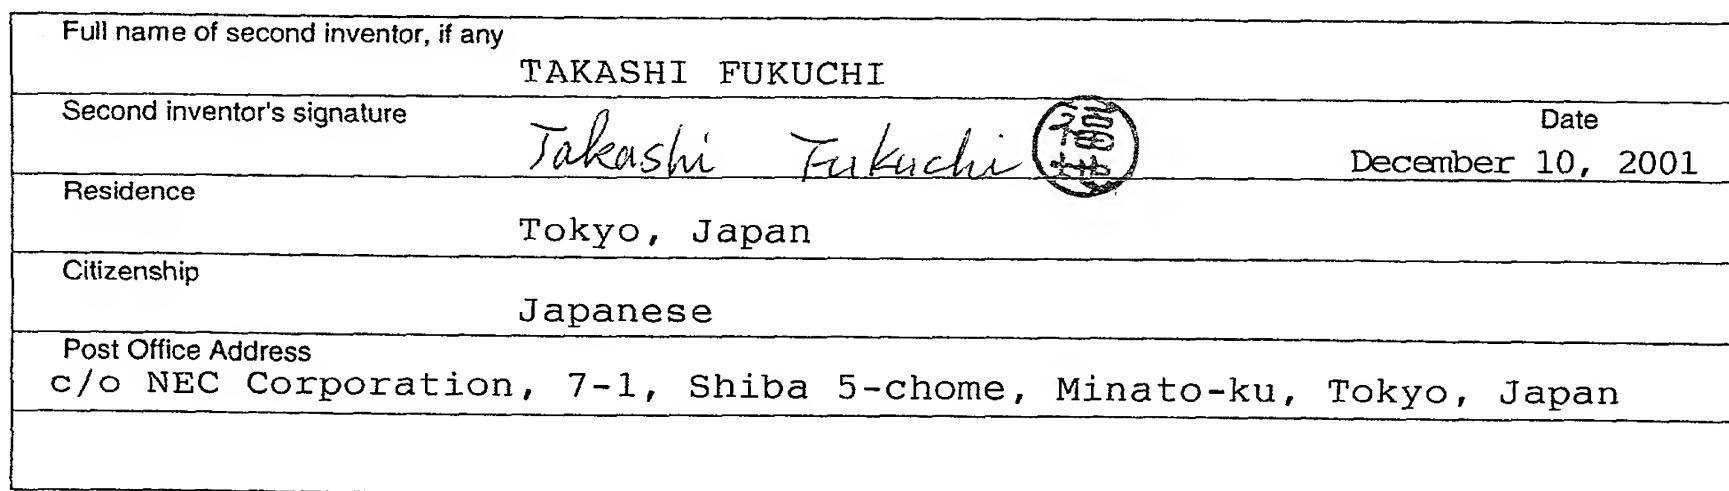 Full name of second inventor, if any
TAKASHI FUKUCHI
Second inventor's signature
Takashi Fukuchi
福地
Date
December 10, 2001
Residence
Tokyo, Japan
Citizenship
Japanese
Post Office Address
c/o NEC Corporation, 7-1, Shiba 5-chome, Minato-ku, Tokyo, Japan